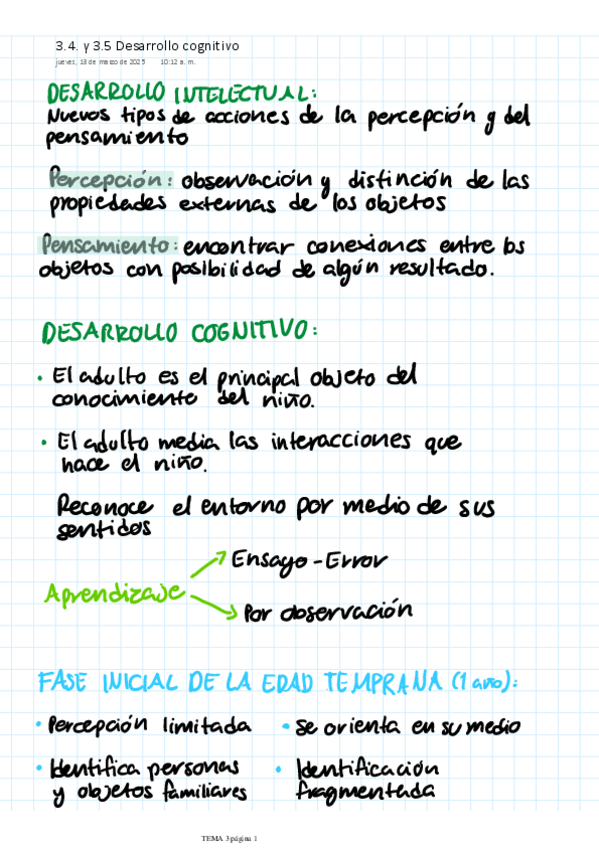 3.4. y 3.5 Desarrollo cognitivo
jueves, 13 de marzo de 2025 10:12 a. m.
DESARROLLO INTELECTUAL:
Nuevos tipos de acciones de la percepción y del
pensamiento
Percepción: observación y distinción de las
propiedades externas de los objetos
Pensamiento: encontrar conexiones entre los
objetos con posibilidad de algún resultado.
DESARROLLO COGNITIVO:
• El adulto es el principal objeto del
conocimiento del niño.
• El adulto media las interacciones que
hace el niño.
Reconoce el entorno por medio de sus
sentidos
Aprendizaje
Ensayo - Error
Por observación
FASE INICIAL DE LA EDAD TEMPRANA (1 año):
• Percepción limitada
• Se orienta en su medio
• Identifica personas
y objetos familiares
• Identificación
fragmentada
TEMA 3 página 1